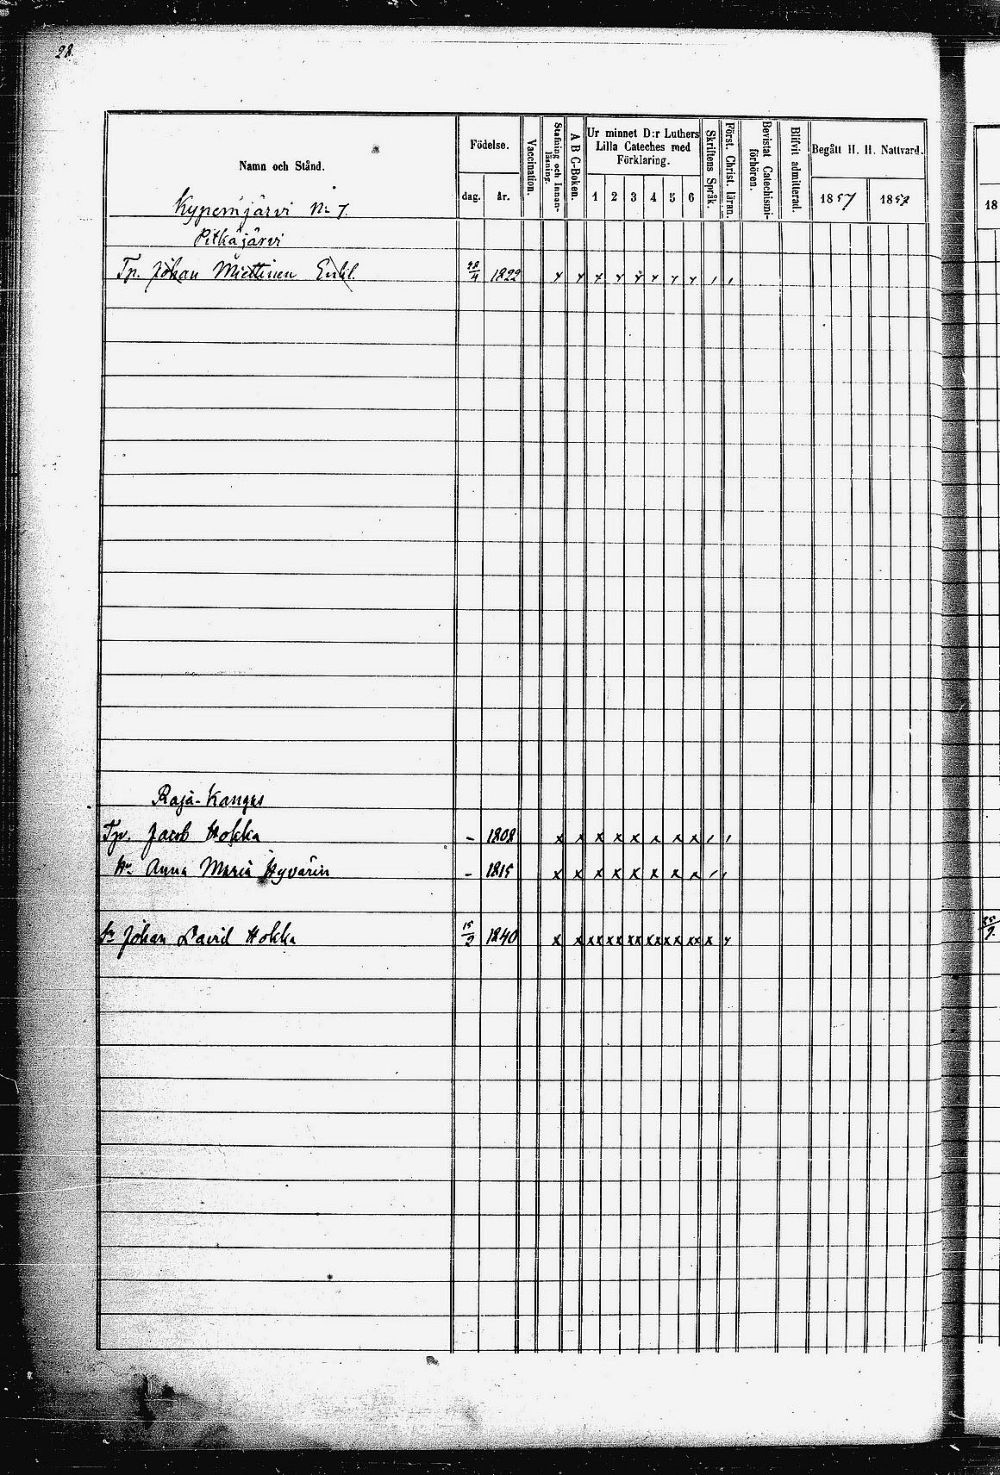 28.
Namn och Stånd.
Födelse.
dag. år.
Vaccination.
Stafning och Innan-
läsning.
A B C-Boken.
Ur minnet D:r Luthers
Lilla Cateches med
Förklaring.
1 2 3 4 5 6
Skriftens Språk.
Först. Christ. läran.
Bevistat Catechismi-
förhören.
Blifvit admitterad.
Begått H. H. Nattvard.
1857 1858
18
Kypemjärvi No 7
Pitkäjärvi
Tp. Johan Miettinen 1822 x x x x x x x x / /
Raja-Kangas
Tp. Jacob Hokka - 1808 x x x x x x x x / /
Hu Anna Maria Hyvärin - 1815 x x x x x x x x / /
Sn Johan David Hokka 15/2 1840 x x xx xx xx xx xx xx x x